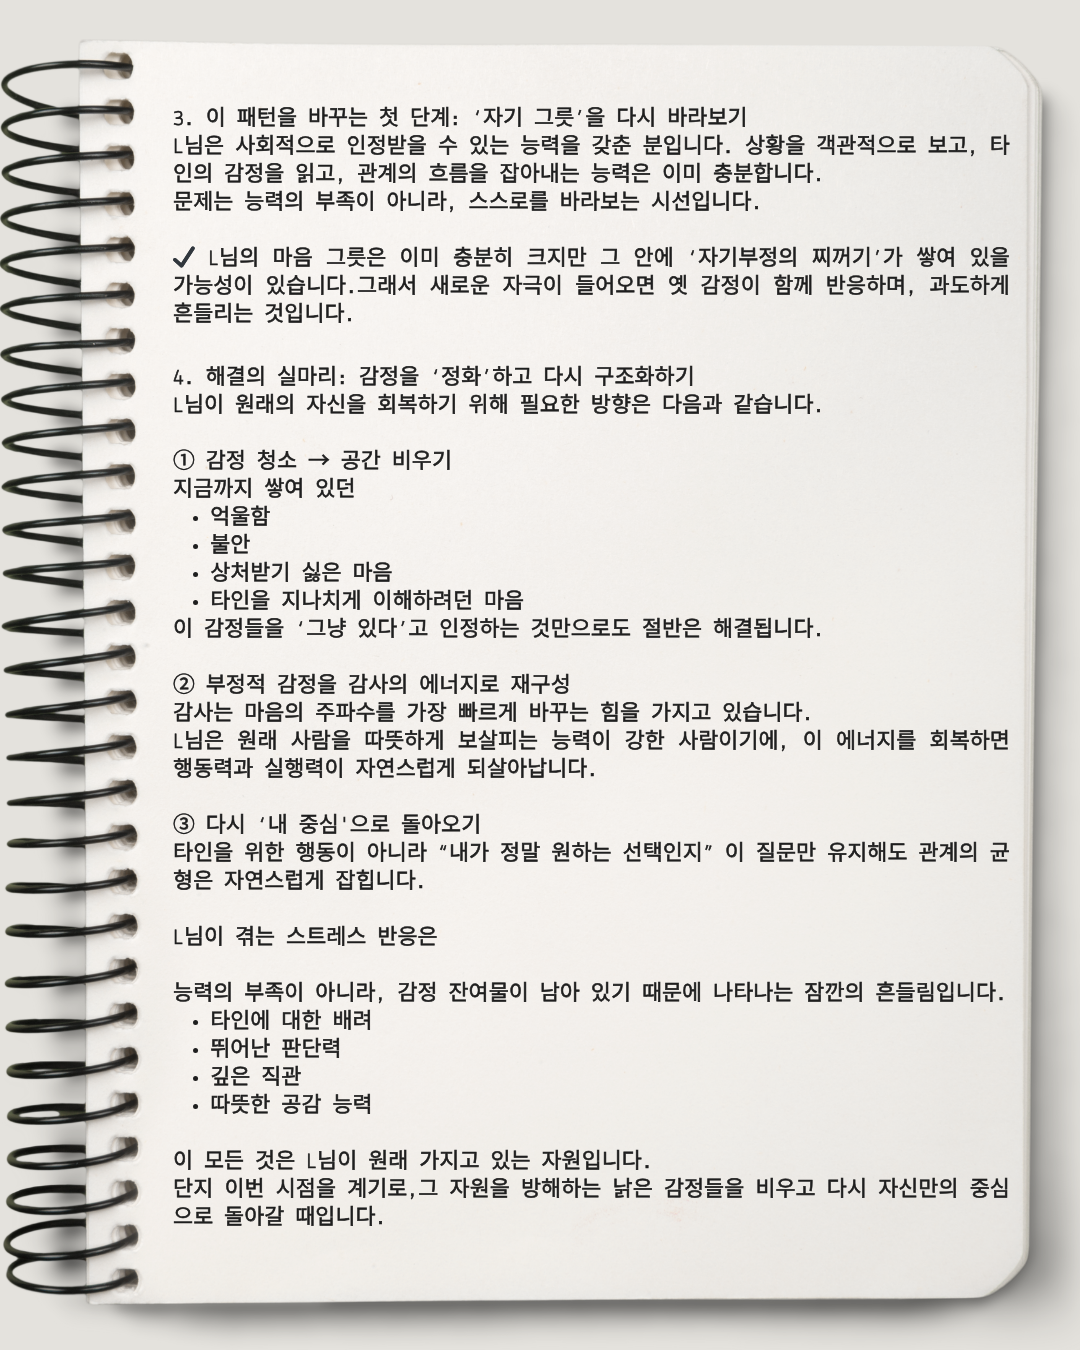 3. 이 패턴을 바꾸는 첫 단계: ‘자기 그릇’을 다시 바라보기
L님은 사회적으로 인정받을 수 있는 능력을 갖춘 분입니다. 상황을 객관적으로 보고, 타
인의 감정을 읽고, 관계의 흐름을 잡아내는 능력은 이미 충분합니다.
문제는 능력의 부족이 아니라, 스스로를 바라보는 시선입니다.
✓ L님의 마음 그릇은 이미 충분히 크지만 그 안에 ‘자기부정의 찌꺼기’가 쌓여 있을
가능성이 있습니다.그래서 새로운 자극이 들어오면 옛 감정이 함께 반응하며, 과도하게
흔들리는 것입니다.
4. 해결의 실마리: 감정을 ‘정화’하고 다시 구조화하기
L님이 원래의 자신을 회복하기 위해 필요한 방향은 다음과 같습니다.
① 감정 청소 → 공간 비우기
지금까지 쌓여 있던
• 억울함
• 불안
• 상처받기 싫은 마음
• 타인을 지나치게 이해하려던 마음
이 감정들을 ‘그냥 있다’고 인정하는 것만으로도 절반은 해결됩니다.
② 부정적 감정을 감사의 에너지로 재구성
감사는 마음의 주파수를 가장 빠르게 바꾸는 힘을 가지고 있습니다.
L님은 원래 사람을 따뜻하게 보살피는 능력이 강한 사람이기에, 이 에너지를 회복하면
행동력과 실행력이 자연스럽게 되살아납니다.
③ 다시 ‘내 중심'으로 돌아오기
타인을 위한 행동이 아니라 “내가 정말 원하는 선택인지” 이 질문만 유지해도 관계의 균
형은 자연스럽게 잡힙니다.
L님이 겪는 스트레스 반응은
능력의 부족이 아니라, 감정 잔여물이 남아 있기 때문에 나타나는 잠깐의 흔들림입니다.
• 타인에 대한 배려
• 뛰어난 판단력
• 깊은 직관
• 따뜻한 공감 능력
이 모든 것은 L님이 원래 가지고 있는 자원입니다.
단지 이번 시점을 계기로,그 자원을 방해하는 낡은 감정들을 비우고 다시 자신만의 중심
으로 돌아갈 때입니다.